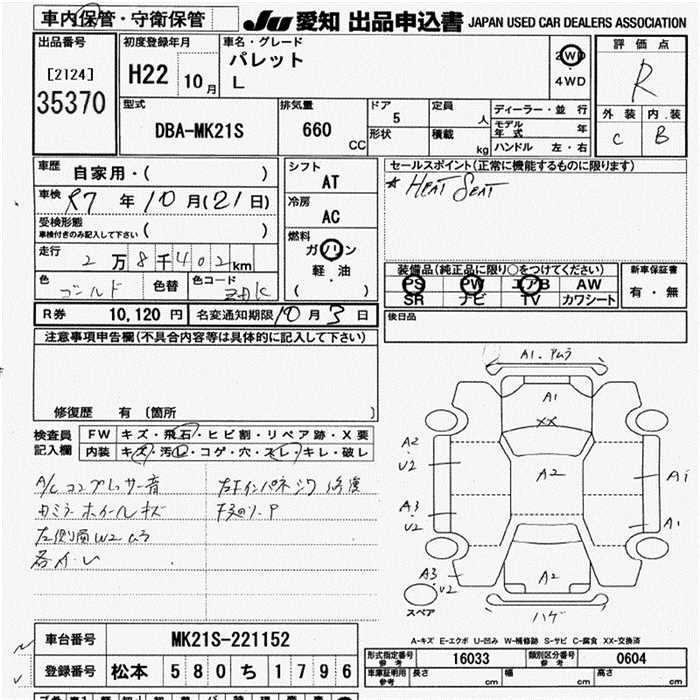 車内保管・守衛保管
JU 愛知 出品申込書 JAPAN USED CAR DEALERS ASSOCIATION
出品番号
[2124]
35370
初度登録年月
H22 10月
車名・グレード
パレット
L
2WD
4WD
評価点
R
外装 内装
C B
型式
DBA-MK21S
排気量
660 CC
ドア
5
形状
定員
人
積載
kg
ディーラー・並行
モデル年式 年
ハンドル 左・右
車歴
自家用・( )
車検 R7 年 10月(21日)
受検形態
車検付きのみ記入して下さい ( )
走行
2万8千402km
色 ゴールド 色替 色コード
シフト
AT
冷房
AC
燃料
ガソリン
軽・油
( )
セールスポイント(正常に機能するものに限ります)
* HEAT SEAT
装備品(純正品に限り○をつけてください)
PS PW エアB AW
SR ナビ TV カワシート
新車保証書
有・無
R券 10,120 円 名変通知期限 10月3日
後日品
注意事項申告欄(不具合内容等は具体的に記入して下さい)
修復歴 有 〔箇所 〕
検査員記入欄
FW キズ・飛石・ヒビ割・リペア跡・X要
内装 キズ・汚レ・コゲ・穴・スレ・キレ・破レ
A/Cコンプレッサー音
カミラ ホイールキズ
左側面W2ムラ
各A・U
左Fインパネジワ修復
A1.アムラ
A1
XX
A2
U2
A2
A1
A3
U2
A1
A3
U2
A2
ハゲ
スペア
A-キズ E-エクボ U-凹み W-補修跡 S-サビ C-腐食 XX-交換済
車台番号 MK21S-221152
登録番号 松本 580 ち 1796
形式指定番号 参考 16033 類別区分番号 参考 0604
車庫証明用 参考 長さ cm 幅 cm 高さ cm